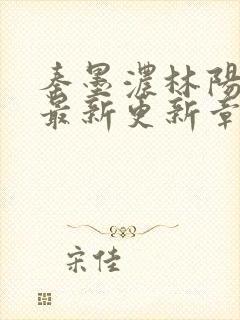 秦墨濃林陽
最新更新章
宋佳